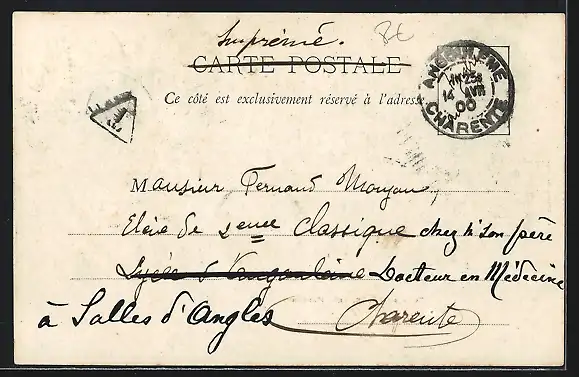 Imprimé.
CARTE POSTALE
Ce côté est exclusivement réservé à l'adresse
ANGOULEME
14 AVR
00
CHARENTE
Monsieur Fernand
Elève de 2eme classique chez Mr son père
Lycée d'Angoulême Docteur en Médecine
à Salles d'Angles Charente